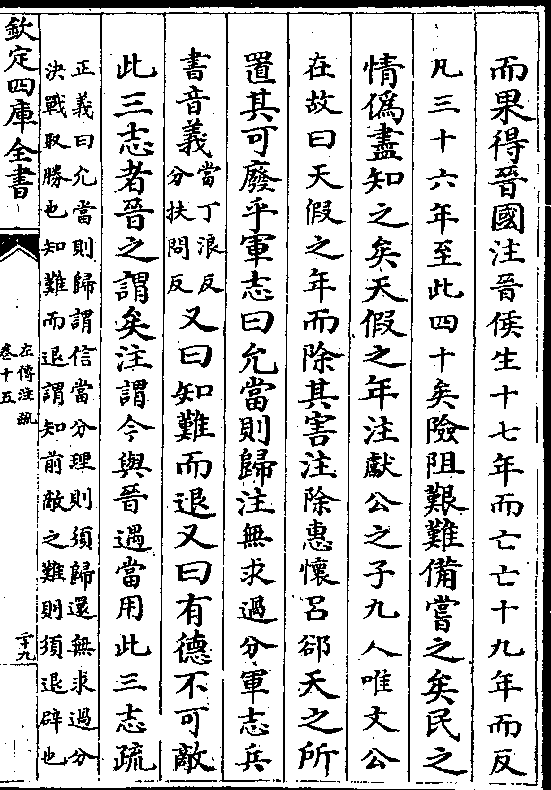 而果得晉國注晉侯生十七年而亡亡十九年而反
凡三十六年至此四十矣險阻艱難備嘗之矣民之
情偽盡知之矣天假之年注獻公之子九人唯文公
在故曰天假之年而除其害注除惠懷呂郤天之所
置其可廢乎軍志曰允當則歸注無求過分軍志兵
書音義當丁浪反
分扶問反
又曰知難而退又曰有德不可敵
此三志者晉之謂矣注謂今與晉遇當用此三志疏
正義曰允當則歸謂信當分理則須歸還無求過分
決戰取勝也知難而退謂知前敵之難則須退辟也
欽定四庫全書
左傳注疏
卷十五
二十九